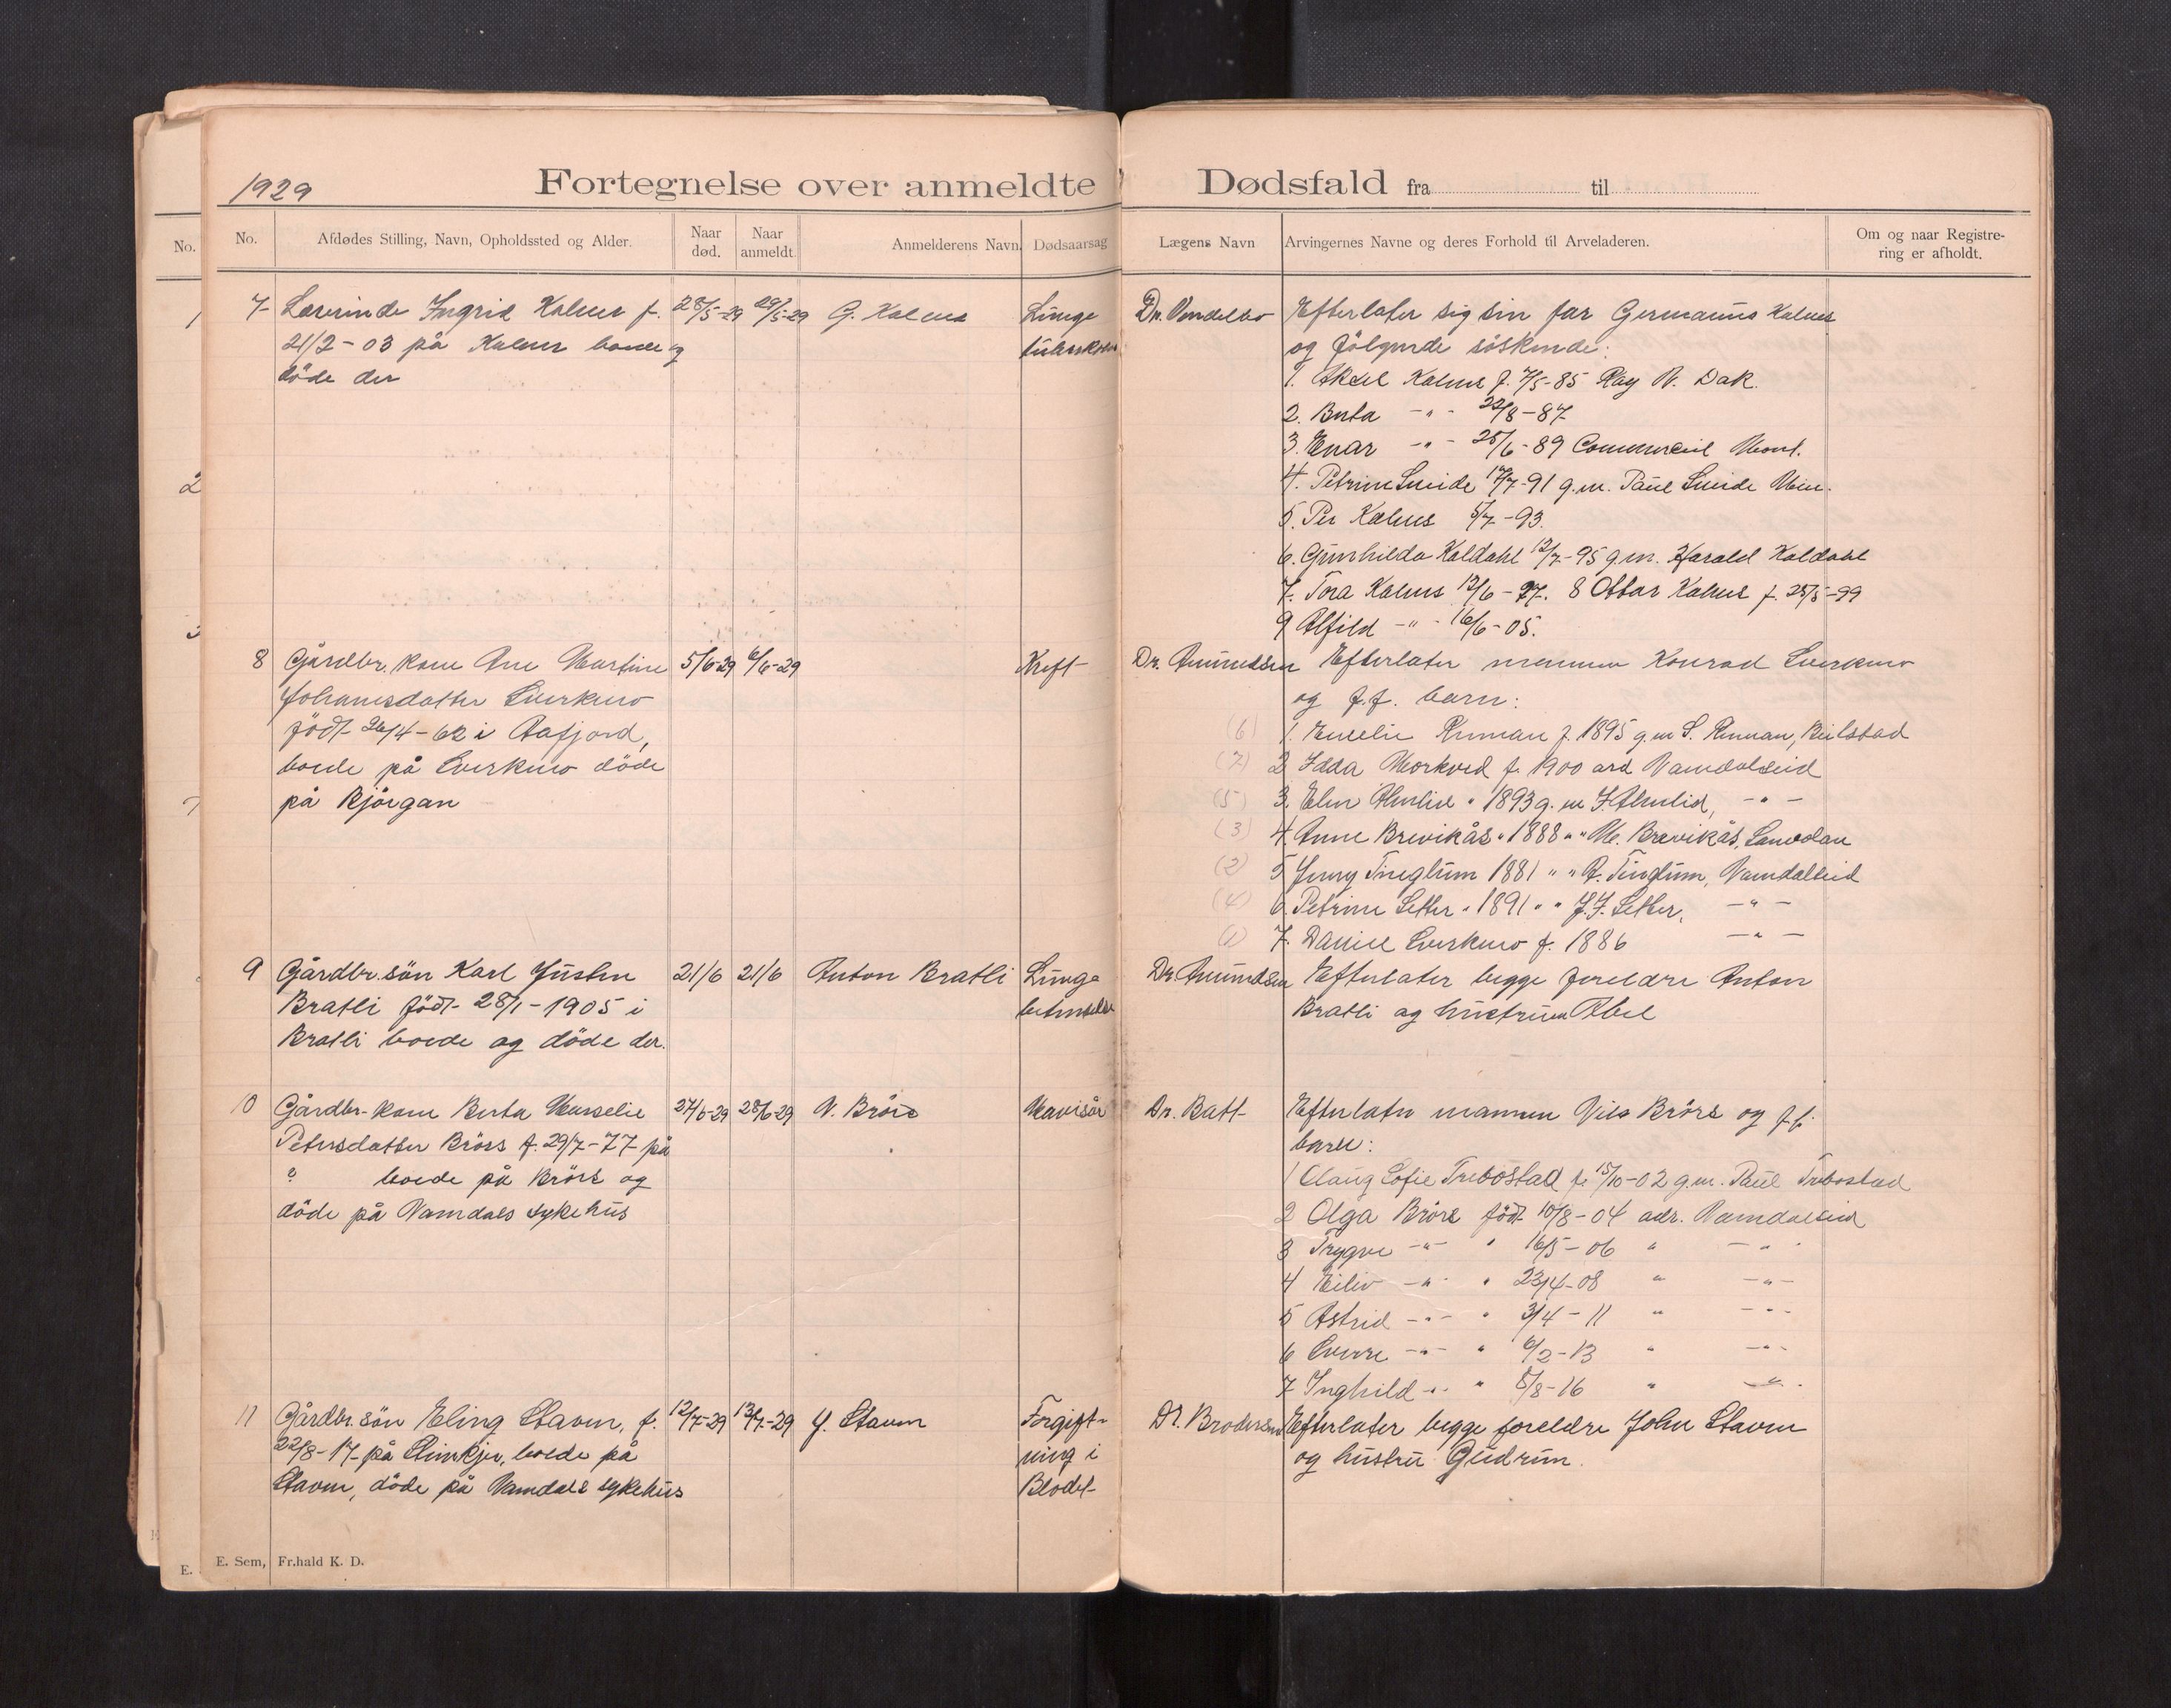 1929
Fortegnelse over anmeldte Dødsfald fra til
No. Afdødes Stilling, Navn, Opholdssted og Alder. Naar død. Naar anmeldt. Anmelderens Navn. Dødsaarsag Lægens Navn Arvingernes Navne og deres Forhold til Arveladeren. Om og naar Registrering er afholdt.
No.
1
2
3
7
7 Lærerinde Ingrid Kalnes f. 28/5-29 29/5-29 G. Kalnes Lunge
21/2-03 på Kalnes boede og tuberkulose
döde der
Dr. Vendelbo Efterlater sig sin far Germanus Kalnes
og fölgende söskende:
1. Aksel Kalnes f. 7/5-85 Ray N. Dak.
2. Berta -"- 22/8-87
3. Enar -"- 25/6-89 Commercil Mont.
4. Petrine Sunde 17/7-91 g.m. Paul Sunde Min.
5. Per Kalnes 5/7-93.
6. Gunhilda Kaldahl 12/7-95 g.m. Harald Kaldahl
7. Tora Kalnes 12/6-97. 8 Ottar Kalnes f. 25/5-99
9 Alfild -"- 16/6-05.
8 Gårdbr. kone Ane Martine 5/6-29 6/6-29 Kreft
Johanesdatter Sverkmo
född 26/4-62 i Aafjord,
boede på Sverkmo döde
på Bjørgan
Dr. Amundsen Efterlater mannen Konrad Sverkmo
og f.f. barn:
(6) 1. Emelie Rinnan f. 1895 g.m S. Rinnan, Beilstad
(7) 2 Idda Morkved f. 1900 ard Namdalseid
(5) 3. Elen Almlid " 1893 g. m J. Almlid, -"-
(3) 4. Anne Brevikås " 1888 " " M. Brevikås, Sandvolan
(2) 5 Jenny Tinglum 1881 " " A. Tinglum, Namdalseid
(4) 6. Petrine Setter " 1891 " " J.J. Setter, -"-
(1) 7. Daniel Sverkmo f. 1886 -"-
9 Gårdbr. sön Karl Justin 21/6 21/6 Anton Bratli Lunge
Bratli född 28/1-1905 i betendelse
Bratli boede og döde der.
Dr. Amundsen Efterlater begge foreldre Anton
Bratli og hustruen Abel
10 Gårdbr- kone Berta Masselie 27/6-29 28/6-29 N. Brörs Mavesår
Petersdatter Brörs f. 29/7-77 på
" boede på Brörs og
döde på Namdals sykehus
Dr. Batt Efterlater mannen Nils Brörs og f.f.
barn:
1 Olaug Sofie Trebostad f. 15/10-02 g.m. Paul Trebostad
2 Olga Brörs född 10/8-04 adr. Namdalseid
3 Trygve -"- " 16/5-06 " -"-
4 Eiliv -"- " 23/4-08 " -"-
5 Astrid -"- " 3/4-11 " -"-
6 Sverre -"- " 6/2-13 " -"-
7 Inghild -"- " 5/8-16 " -"-
11 Gårdbr. sön Eling Staven, f. 12/7-29 13/7-29 J. Staven Forgift-
22/8-17 på Stenkjer, boede på ning i
Staven, döde på Namdals sykehus Blodet
Dr. Brodersen Efterlater begge foreldre John Staven
og hustru Gudrun.
E. Sem, Fr.hald K. D.
E.